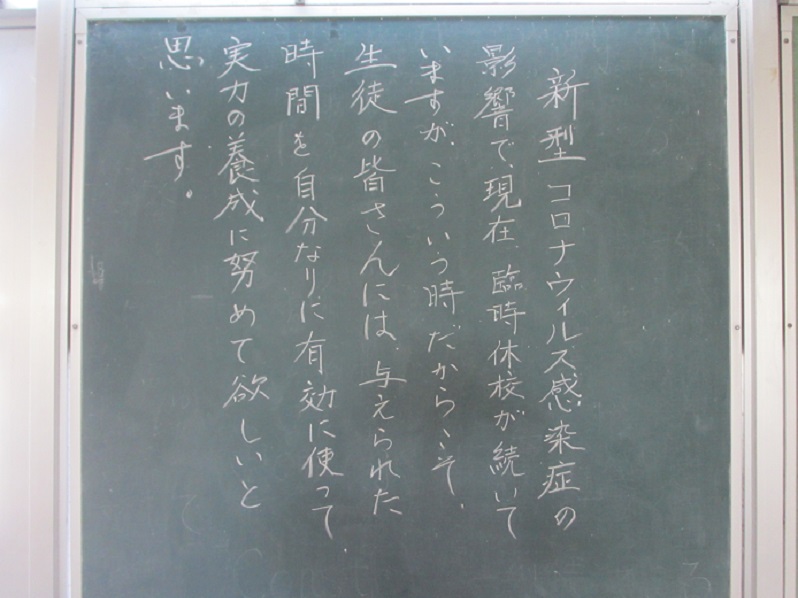 新型コロナウィルス感染症の
影響で、現在、臨時休校が続いて
いますが、こういう時だからこそ、
生徒の皆さんには、与えられた
時間を自分なりに有効に使って、
実力の養成に努めて欲しいと
思います。